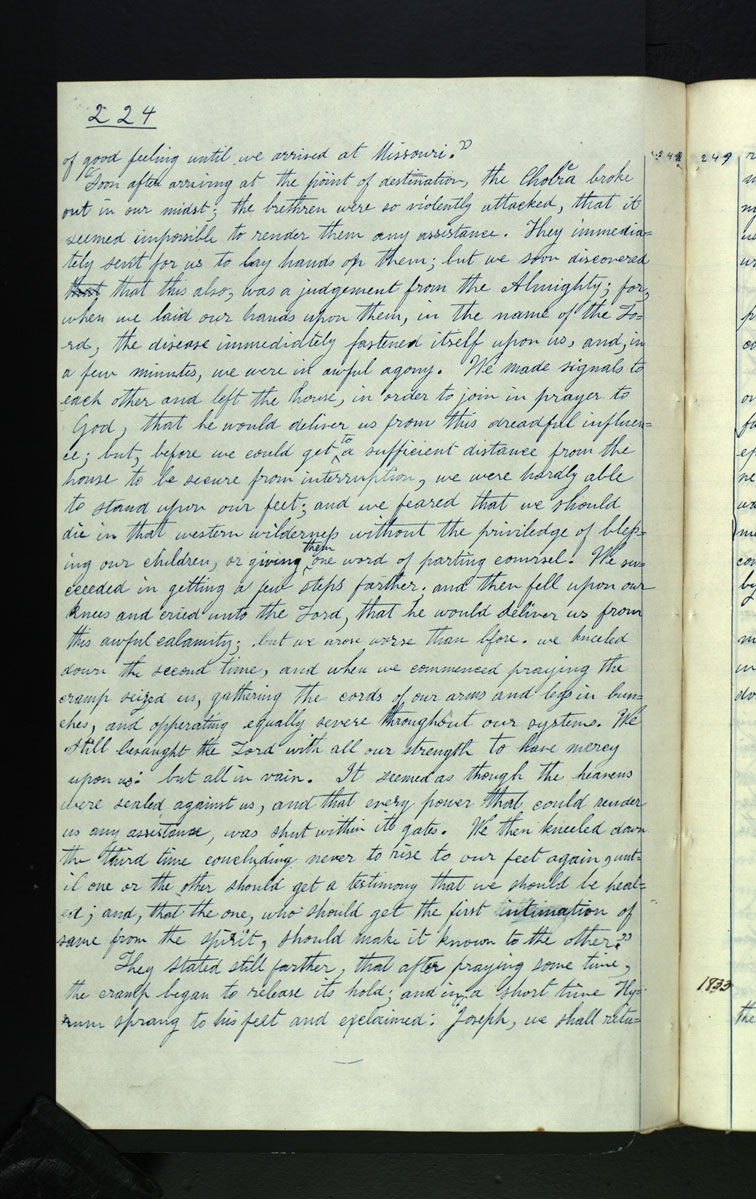 224
of good feeling until we arrived at Missouri."
"Soon after arriving at the point of destination, the Cholera broke
out in our midst; the brethren were so violently attacked, that it
seemed impossible to render them any assistance. They immedia=
tely sent for us to lay hands on them; but we soon discovered
that that this also, was a judgement from the Almighty; for,
when we laid our hands upon them, in the name of the Lo=
rd, the disease immediately fastened itself upon us, and, in
a few minutes, we were in awful agony. We made signals to
each other and left the house, in order to join in prayer to
God, that he would deliver us from this dreadful influen=
ce; but, before we could get to a sufficient distance from the
house to be secure from interruption, we were hardly able
to stand upon our feet; and we feared that we should
die in that western wilderness without the priviledge of bless=
ing our children, or giving them one word of parting counsel. We suc=
ceeded in getting a few steps farther, and then fell upon our
knees and cried unto the Lord, that he would deliver us from
this awful calamity; but we arose worse than bfore. we kneeled
down the second time, and when we commenced praying the
cramp seized us, gathering the cords of our arms and legs in bun=
ches, and opperating equally severe throughout our system. We
still besought the Lord with all our strength to have mercy
upon us: but all in vain. It seemed as though the heavens
were sealed against us, and that every power that could render
us any assistance, was shut within its gates. We then kneeled down
the third time concluding never to rise to our feet again, unt=
il one or the other should get a testimony that we should be heal=
ed; and, that the one, who should get the first intimation of
same from the spirit, should make it known to the other."
They stated still farther, that after praying some time,
the cramp began to release its hold; and in a short time Hy=
rum sprang to his feet and exclaimed: Joseph, we shall retu=
249
1833
the